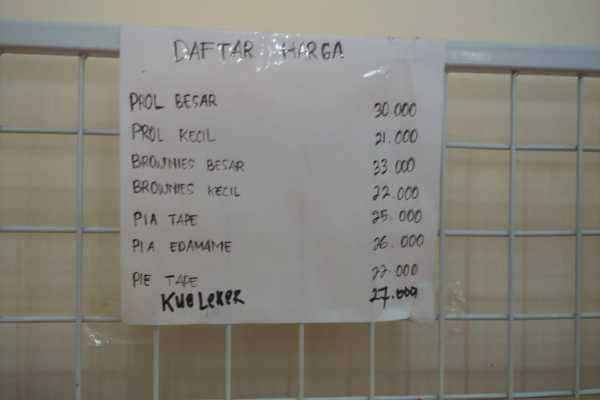 DAFTAR HARGA
PROL BESAR 30.000
PROL KECIL 21.000
BROWNIES BESAR 33.000
BROWNIES KECIL 22.000
PIA TAPE 25.000
PIA EDAMAME 26.000
PIE TAPE
Kue Leker 27.000